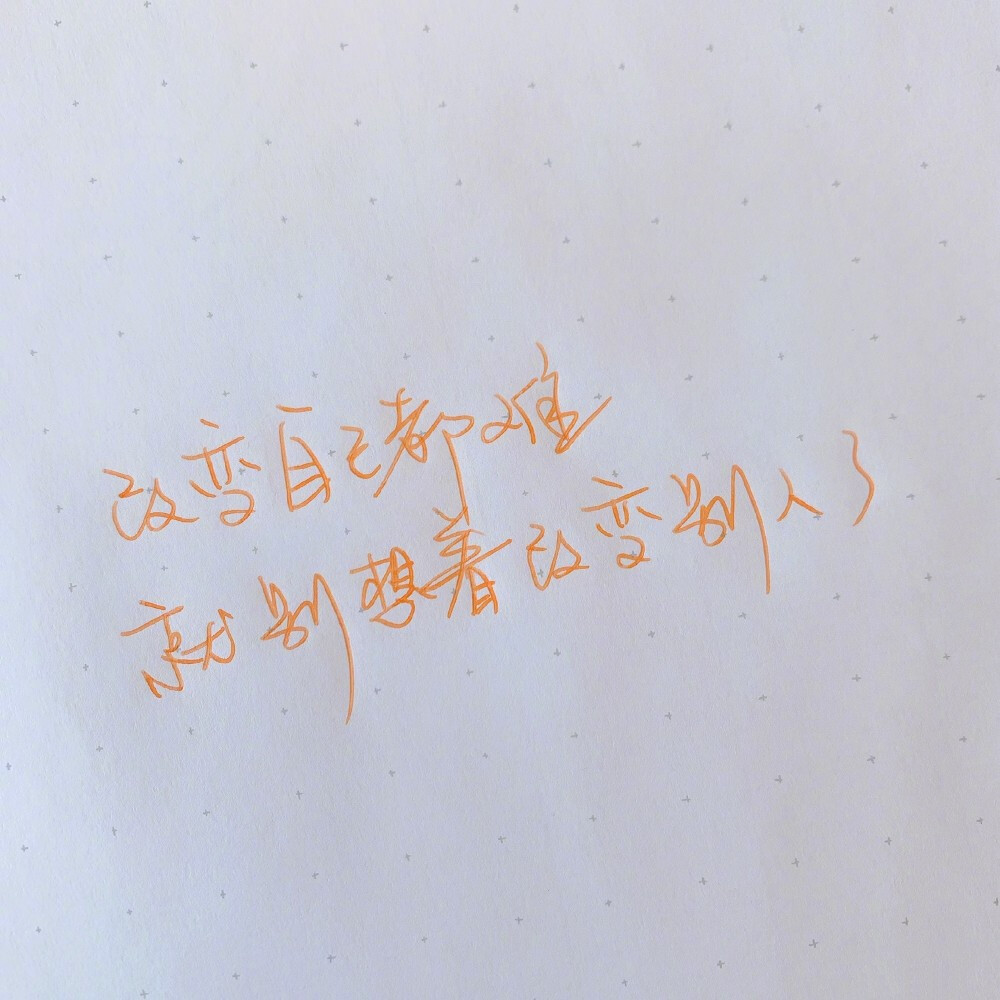 改变自己都难
就别想着改变别人了